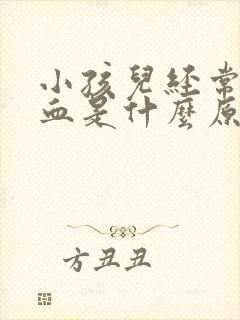 小孩兒經常
血是什麼原
方丑丑